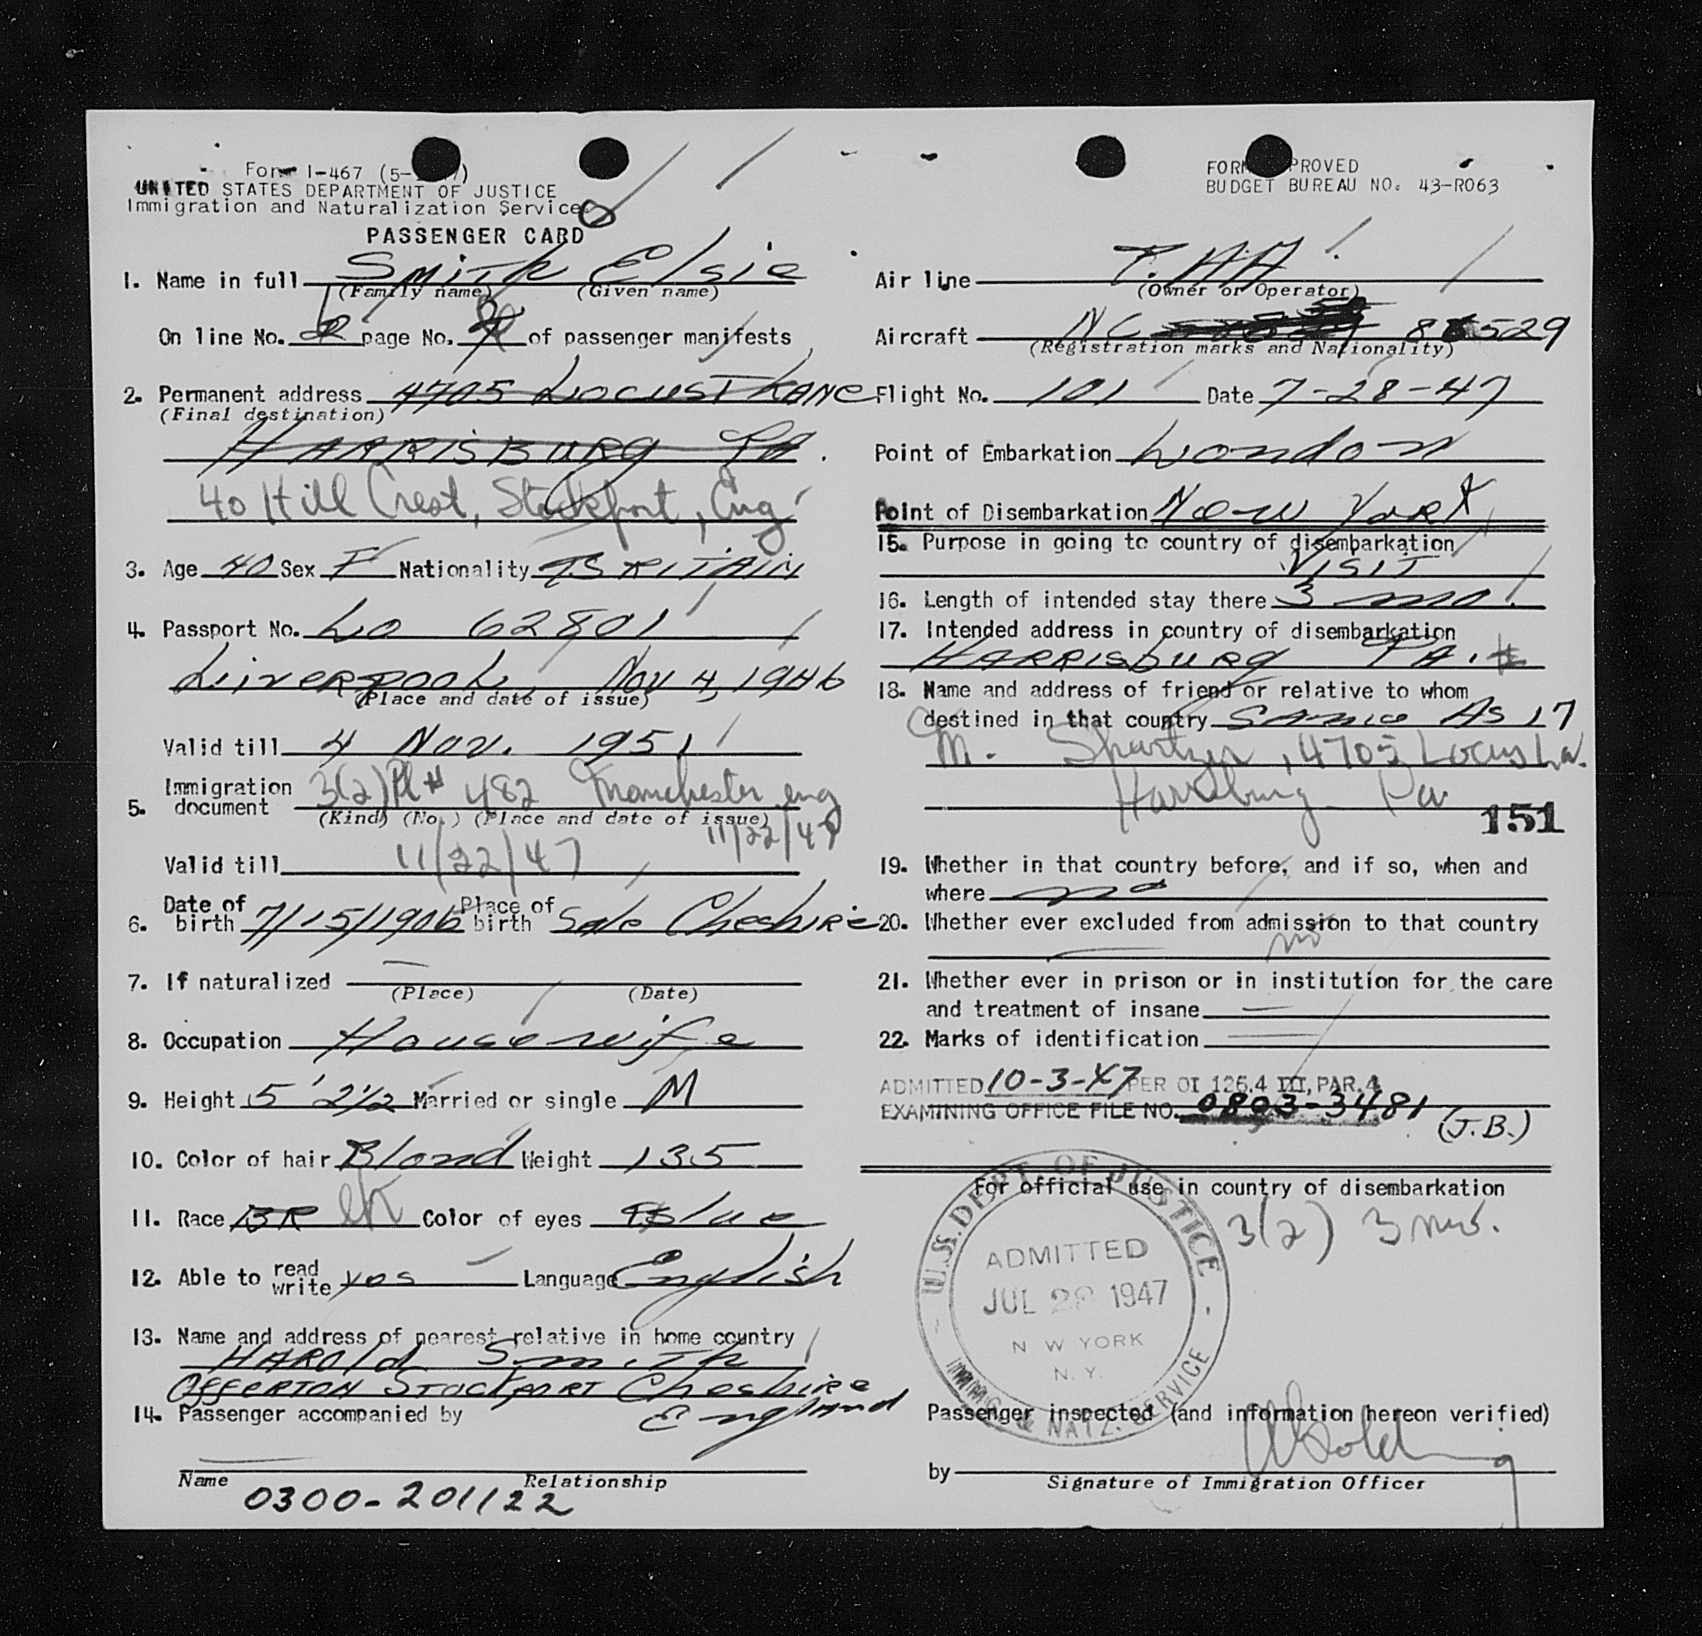 Form I-467 (5-
UNITED STATES DEPARTMENT OF JUSTICE
Immigration and Naturalization Service
PASSENGER CARD
1. Name in full Smith Elsie
(Family name) (Given name)
On line No. page No. of passenger manifests
2. Permanent address 4705 Locust Lane
(Final destination)
Harrisburg Pa.
40 Hill Crest, Stockport, Eng
3. Age 40 Sex F Nationality Britain
4. Passport No. Lo 62801
Liverpool, Nov 4, 1946
(Place and date of issue)
Valid till 4 Nov. 1951
5. Immigration document 3(2) Pl# 482 Manchester eng
(Kind) (No.) (Place and date of issue)
11/22/47
Valid till 11/22/47
6. Date of birth 7/15/1906 Place of birth Sale Cheshire
7. If naturalized —
(Place) (Date)
8. Occupation Housewife
9. Height 5' 2 1/2 Married or single M
10. Color of hair Blond Weight 135
11. Race BR Color of eyes Blue
12. Able to read write yes Language English
13. Name and address of nearest relative in home country
Harold Smith
Offerton Stockport Cheshire
England
14. Passenger accompanied by
—
Name Relationship
0300-201122
FORM APPROVED
BUDGET BUREAU NO. 43-R063
Air line T.WA
(Owner or Operator)
Aircraft NC 86529
(Registration marks and Nationality)
Flight No. 101 Date 7-28-47
Point of Embarkation London
Point of Disembarkation New York
15. Purpose in going to country of disembarkation
Visit
16. Length of intended stay there 3 mo.
17. Intended address in country of disembarkation
Harrisburg Pa.
18. Name and address of friend or relative to whom
destined in that country Same As 17
M. 4705 Locus La.
Harrisburg Pa
151
19. Whether in that country before, and if so, when and
where no
20. Whether ever excluded from admission to that country
no
21. Whether ever in prison or in institution for the care
and treatment of insane —
22. Marks of identification —
ADMITTED 10-3-47 PER OI 126.4 III, PAR. 4
EXAMINING OFFICE FILE NO. 0803-3481
(J.B.)
For official use in country of disembarkation
3(2) 3 mos.
U.S. DEPT. OF JUSTICE
ADMITTED
JUL 28 1947
N W YORK
N.Y.
IMMIG. & NATZ. SERVICE
Passenger inspected (and information hereon verified)
by
Signature of Immigration Officer